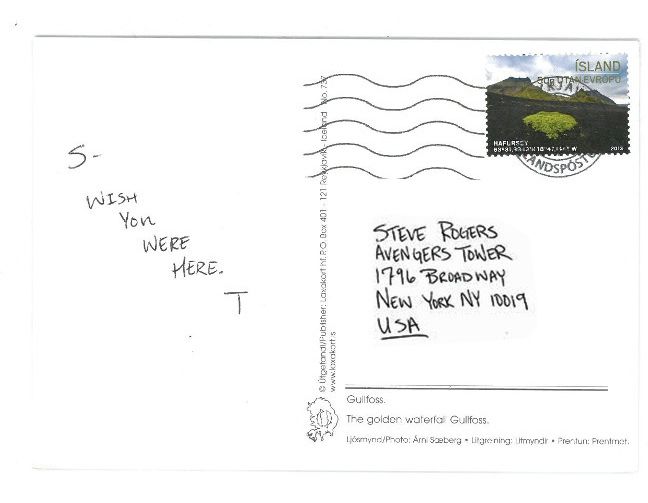 S-
WISH
YOU
WERE
HERE.
T
ÍSLAND
50g UTAN EVRÓPU
HAFURSEY
2013
ÍSLANDSPÓSTUR
STEVE ROGERS
AVENGERS TOWER
1796 BROADWAY
NEW YORK NY 10019
USA
© Útgefandi/Publisher: Loxakort hf. P.O. Box 401 - 121 Reykjavík - Iceland No. 737
www.loxakort.is
Gullfoss.
The golden waterfal Gullfoss.
Ljósmynd/Photo: Árni Sæberg • Litgreining: Litmyndir • Prentun: Prentmet.